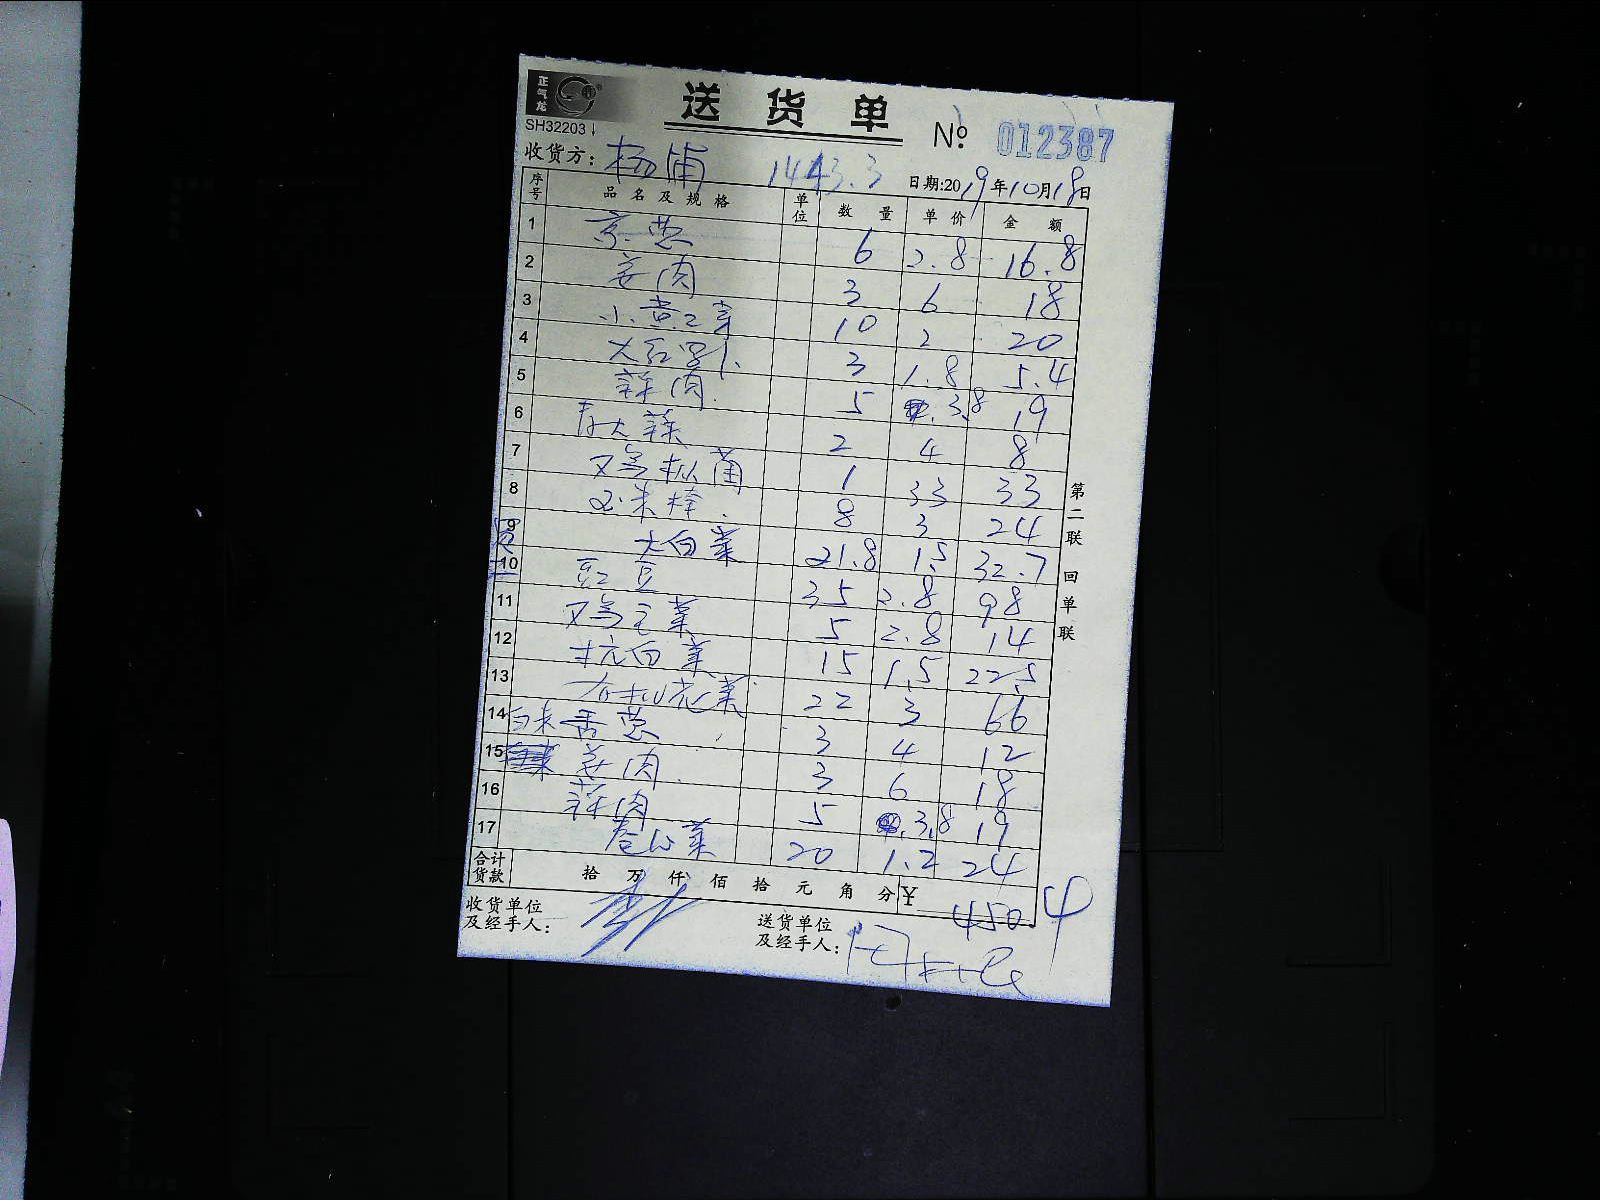 正气龙
送货单
SH32203
№ 012387
收货方：杨浦 1443.3 日期:2019年10月18日
序号 品名及规格 单位 数量 单价 金额
1 京葱 6 2.8 16.8
2 姜肉 3 6 18
3 小黄瓜 10 2 20
4 大红 3 1.8 5.4
5 蒜肉 5 3.8 19
6 大蒜 2 4 8
7 鸡枞菌 1 33 33
8 玉米棒 8 3 24
9 大白菜 21.8 1.5 32.7
10 豇豆 35 2.8 98
11 鸡毛菜 5 2.8 14
12 杭白菜 15 1.5 22.5
13 有机花菜 22 3 66
14 香葱 3 4 12
15 姜肉 3 6 18
16 蒜肉 5 3.8 19
17 卷心菜 20 1.2 24
合计货款 拾 万 仟 佰 拾 元 角 分 ¥ 450.4
收货单位及经手人：
送货单位及经手人：
第二联 回单联